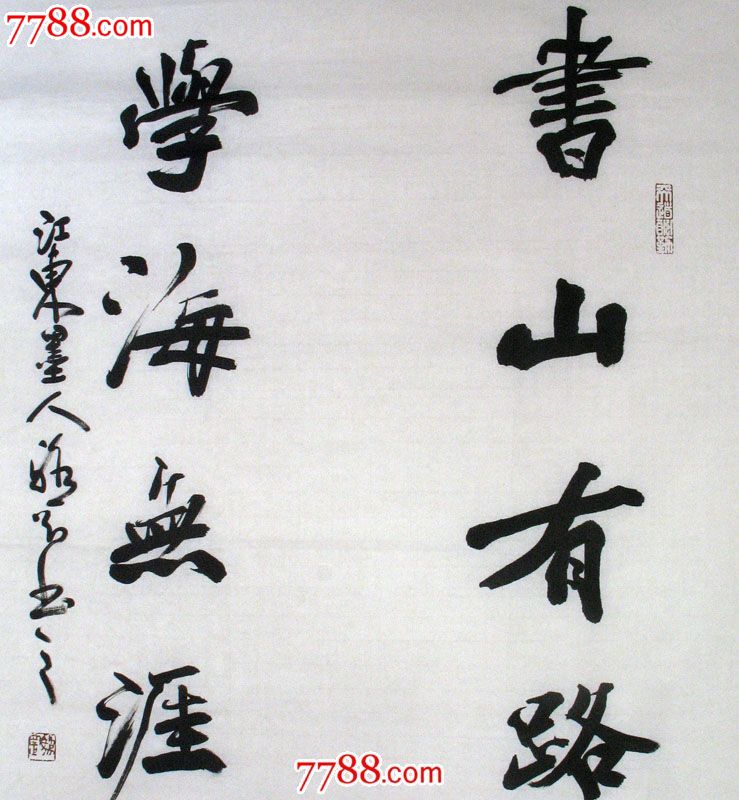 7788.com
書山有路
學海無涯
江東墨人
書之
7788.com